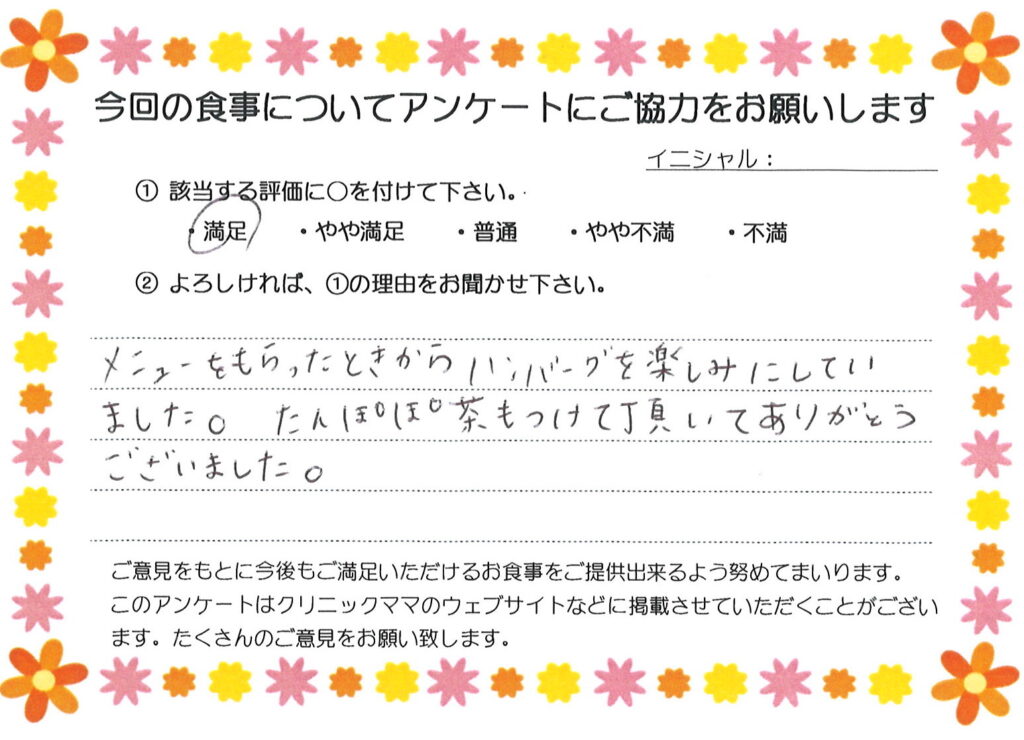 今回の食事についてアンケートにご協力をお願いします
イニシャル：
① 該当する評価に○を付けて下さい。
・満足 ・やや満足 ・普通 ・やや不満 ・不満
② よろしければ、①の理由をお聞かせ下さい。
メニューをもらったときからハンバーグを楽しみにしてい
ました。 たんぽぽ茶もつけて頂いてありがとう
ございました。
ご意見をもとに今後もご満足いただけるお食事をご提供出来るよう努めてまいります。
このアンケートはクリニックママのウェブサイトなどに掲載させていただくことがござい
ます。たくさんのご意見をお願い致します。